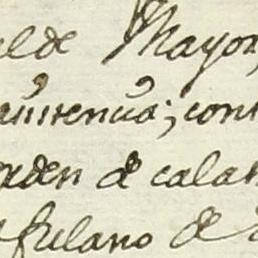 alde Mayor,
ausencia; con
orden de cala
fulano de